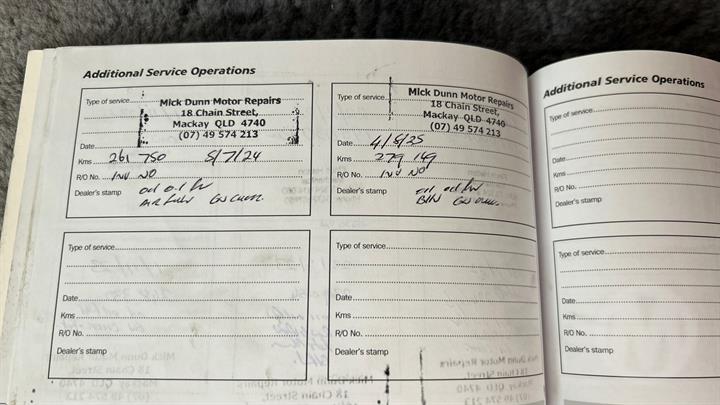 Additional Service Operations
Type of service
Mick Dunn Motor Repairs
18 Chain Street,
Mackay QLD 4740
(07) 49 574 213
Date
Kms 261 750 5/7/24
R/O No. INV NO
Dealer's stamp oil
Type of service
Mick Dunn Motor Repairs
18 Chain Street,
Mackay QLD 4740
(07) 49 574 213
Date 4/5/25
Kms 279 149
R/O No. INV NO
Dealer's stamp oil
Type of service
Date
Kms
R/O No.
Dealer's stamp
Type of service
Date
Kms
R/O No.
Dealer's stamp
Additional Service Operations
Type of service
Date
Kms
R/O No.
Dealer's stamp
Type of service
Date
Kms
R/O No.
Dealer's stamp